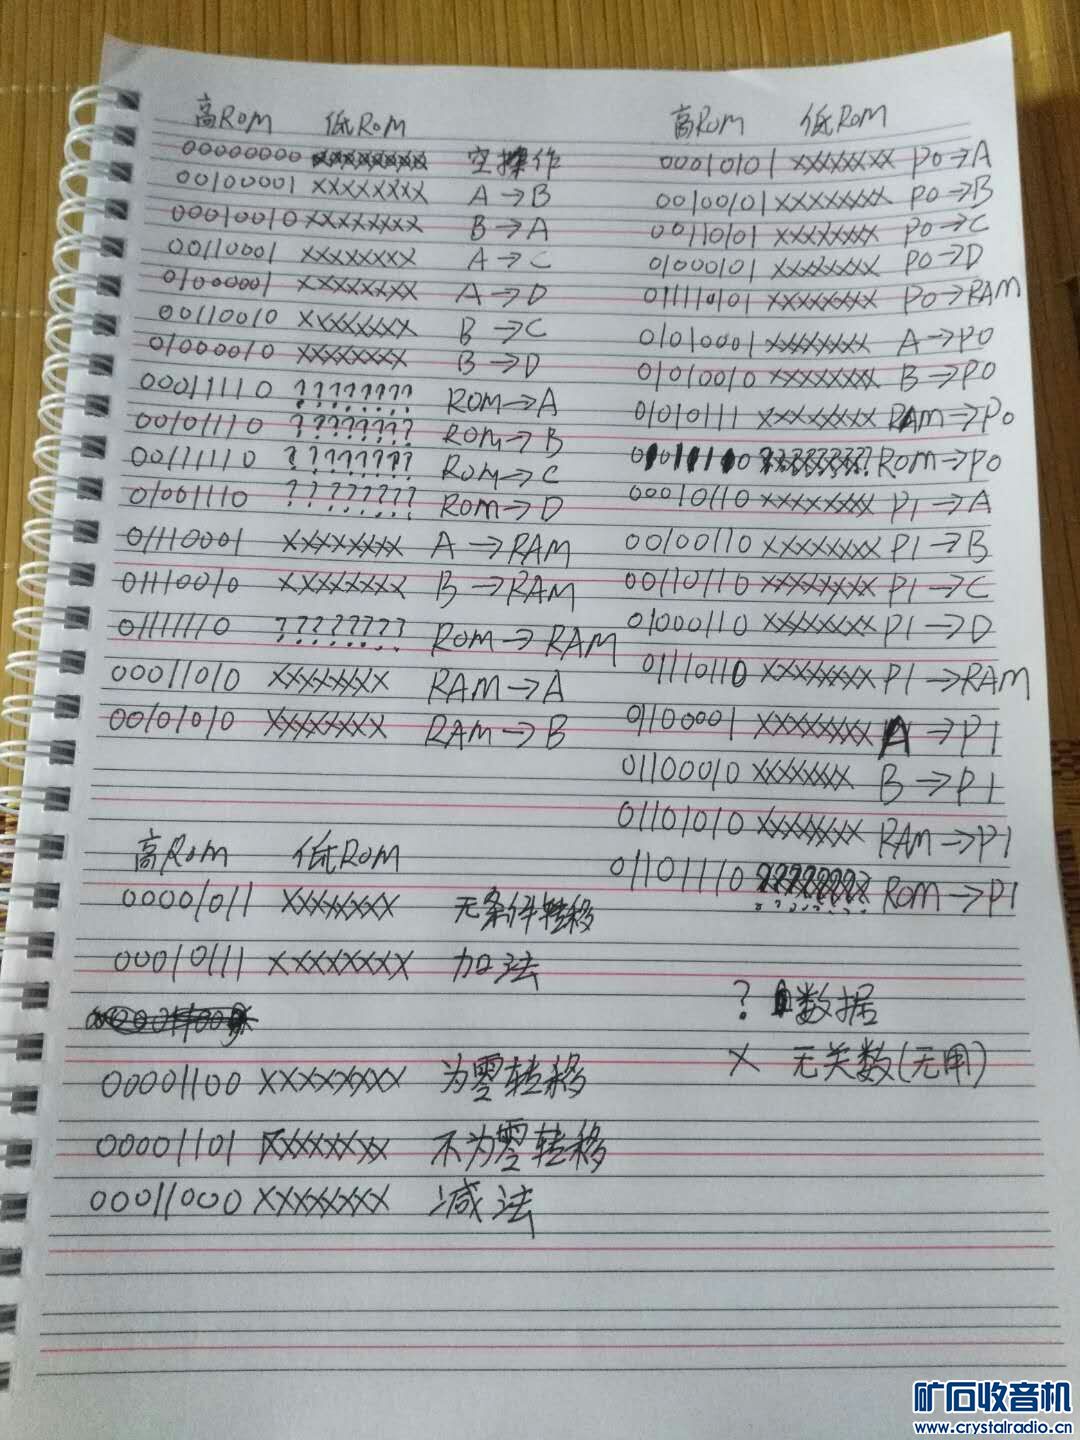 高ROM 低ROM
00000000 xxxxxxxx 空操作
00100001 xxxxxxxx A→B
00010010 xxxxxxxx B→A
00110001 xxxxxxxx A→C
01000001 xxxxxxxx A→D
00110010 xxxxxxxx B→C
01000010 xxxxxxxx B→D
00011110 ???????? ROM→A
00101110 ???????? ROM→B
00111110 ???????? ROM→C
01001110 ???????? ROM→D
01110001 xxxxxxxx A→RAM
01110010 xxxxxxxx B→RAM
01111110 ???????? ROM→RAM
00011010 xxxxxxxx RAM→A
00101010 xxxxxxxx RAM→B
高ROM 低ROM
00001011 xxxxxxxx 无条件转移
00010111 xxxxxxxx 加法
00001100 xxxxxxxx 为零转移
00001101 xxxxxxxx 不为零转移
00011000 xxxxxxxx 减法
高ROM 低ROM
00010101 xxxxxxxx P0→A
00100101 xxxxxxxx P0→B
00110101 xxxxxxxx P0→C
01000101 xxxxxxxx P0→D
01110101 xxxxxxxx P0→RAM
01010001 xxxxxxxx A→P0
01010010 xxxxxxxx B→P0
01010111 xxxxxxxx RAM→P0
ROM→P0
00010110 xxxxxxxx P1→A
00100110 xxxxxxxx P1→B
00110110 xxxxxxxx P1→C
01000110 xxxxxxxx P1→D
01110110 xxxxxxxx P1→RAM
01100001 xxxxxxxx A→P1
01100010 xxxxxxxx B→P1
01101010 xxxxxxxx RAM→P1
01101110 ???????? ROM→P1
? 数据
x 无关数(无用)
矿石收音机
www.crystalradio.cn